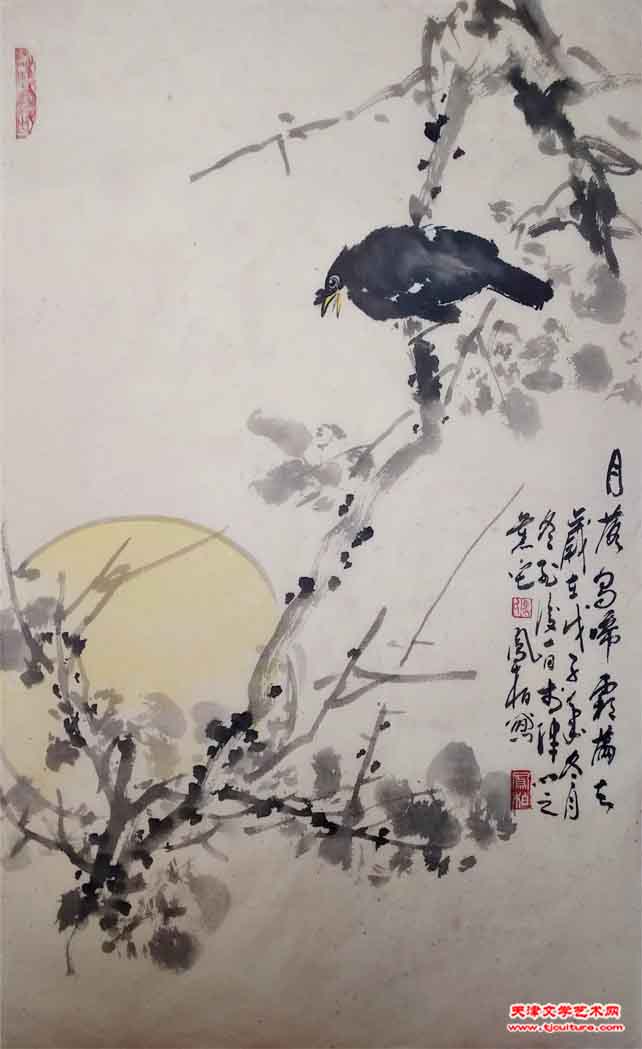 月落乌啼霜满天
岁在戊子年冬月
冬至后一日于津门之
凤柏写
天津文学艺术网
www.tjculture.com